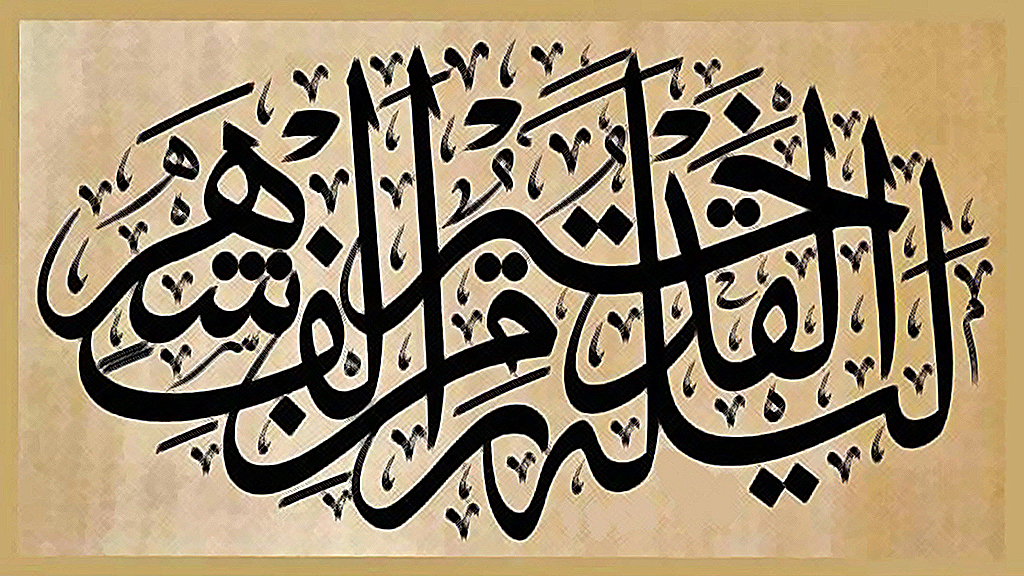 لَيْلَةُ الْقَدْرِ خَيْرٌ مِنْ أَلْفِ شَهْرٍ